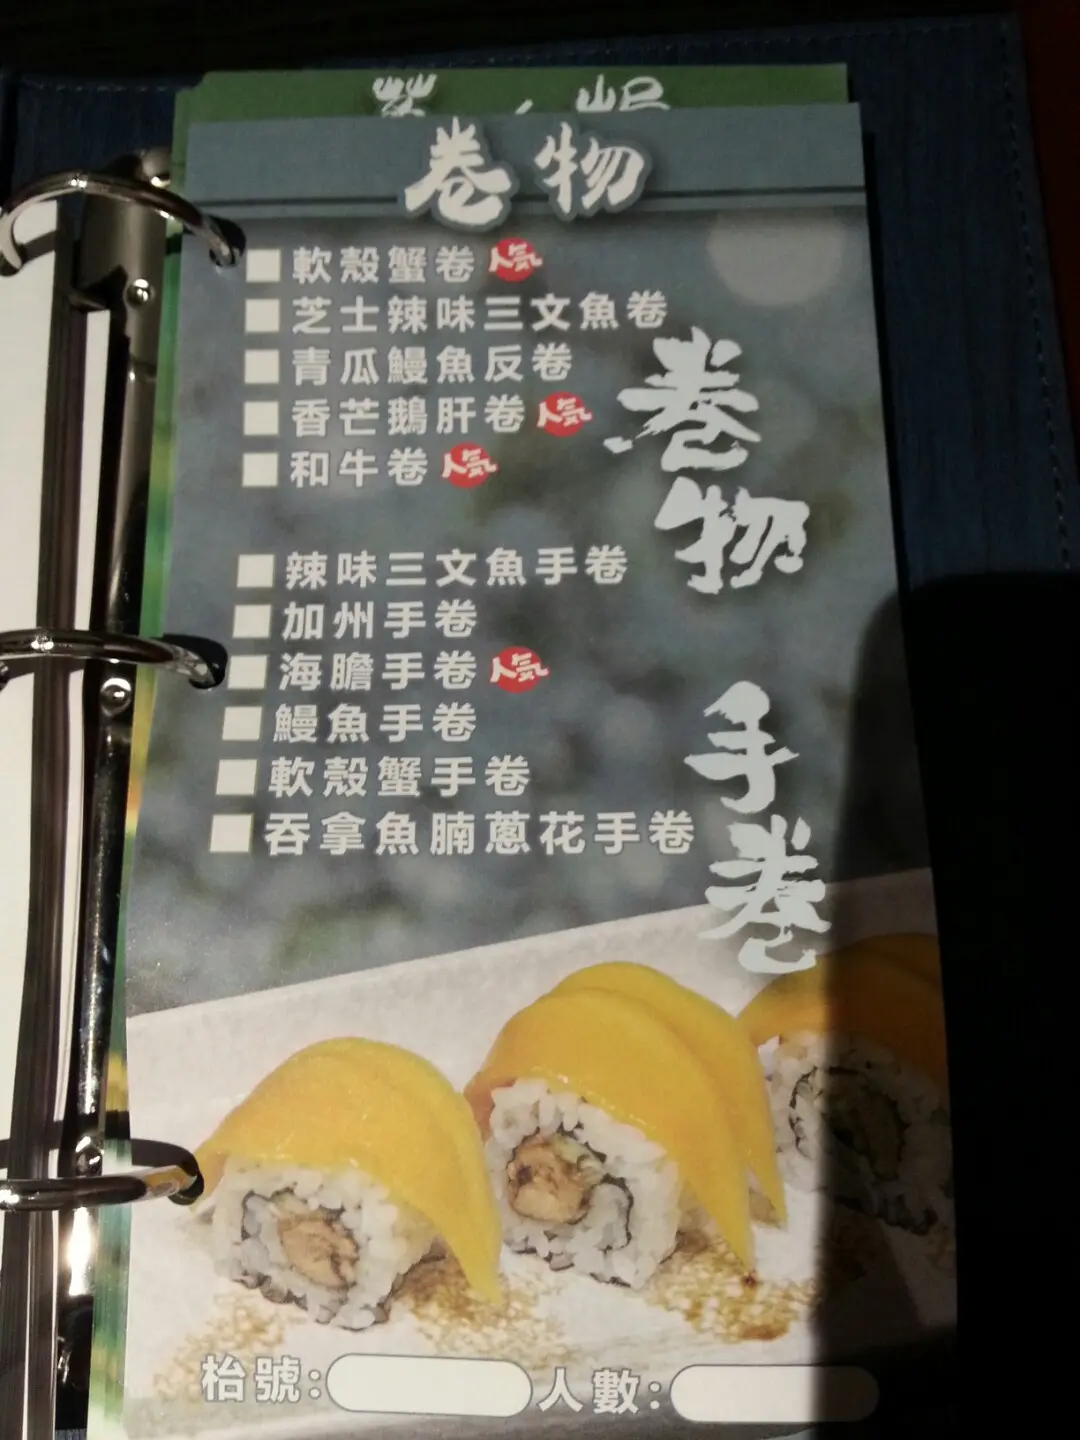 卷物
軟殼蟹卷 人気
芝士辣味三文魚卷
青瓜鰻魚反卷
香芒鵝肝卷 人気
和牛卷 人気
卷物
辣味三文魚手卷
加州手卷
海膽手卷 人気
鰻魚手卷
軟殼蟹手卷
吞拿魚腩蔥花手卷
手卷
枱號:
人數: